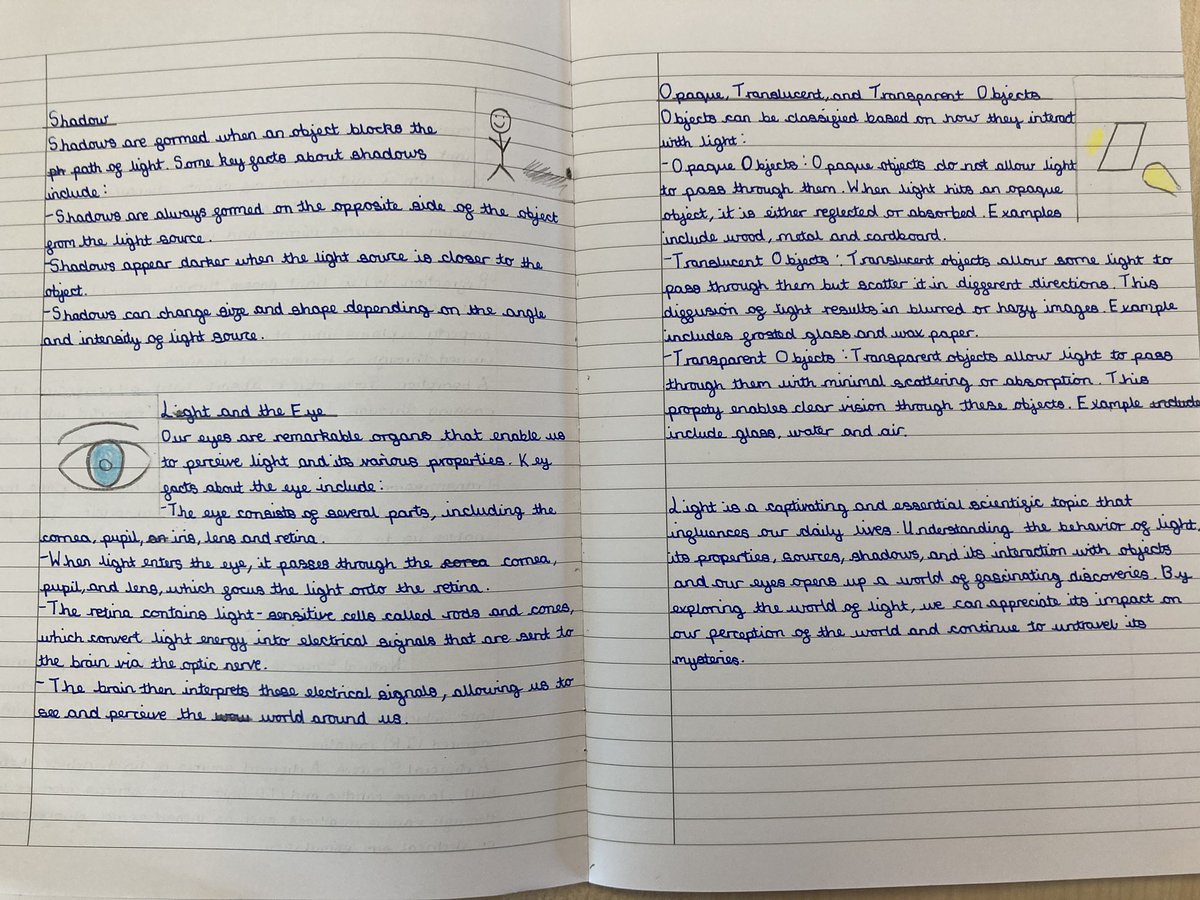 Shadow
Shadows are formed when an object blocks the
ph path of light. Some key facts about shadows
include:
-Shadows are always formed on the opposite side of the object
from the light source.
-Shadows appear darker when the light source is closer to the
object.
-Shadows can change size and shape depending on the angle
and intensity of light source.
Light and the Eye
Our eyes are remarkable organs that enable us
to perceive light and its various properties. Key
facts about the eye include:
-The eye consists of several parts, including the
cornea, pupil, an iris, lens and retina.
-When light enters the eye, it passes through the corea cornea,
pupil, and lens, which focus the light onto the retina.
-The retina contains light-sensitive cells called rods and cones,
which convert light energy into electrical signals that are sent to
the brain via the optic nerve.
-The brain then interprets these electrical signals, allowing us to
see and perceive the world around us.
Opaque, Translucent, and Transparent Objects
Objects can be classified based on how they interact
with light:
-Opaque Objects: Opaque objects do not allow light
to pass through them. When light hits an opaque
object, it is either reflected or absorbed. Examples
include wood, metal and cardboard.
-Translucent Objects: Translucent objects allow some light to
pass through them but scatter it in different directions. This
diffusion of light results in blurred or hazy images. Example
includes frosted glass and wax paper.
-Transparent Objects: Transparent objects allow light to pass
through them with minimal scattering or absorption. This
propety enables clear vision through these objects. Example include
include glass, water and air.
Light is a captivating and essential scientific topic that
influances our daily lives. Understanding the behavior of light,
its properties, sources, shadows, and its interaction with objects
and our eyes opens up a world of fascinating discoveries. By
exploring the world of light, we can appreciate its impact on
our perception of the world and continue to untravel its
mysteries.